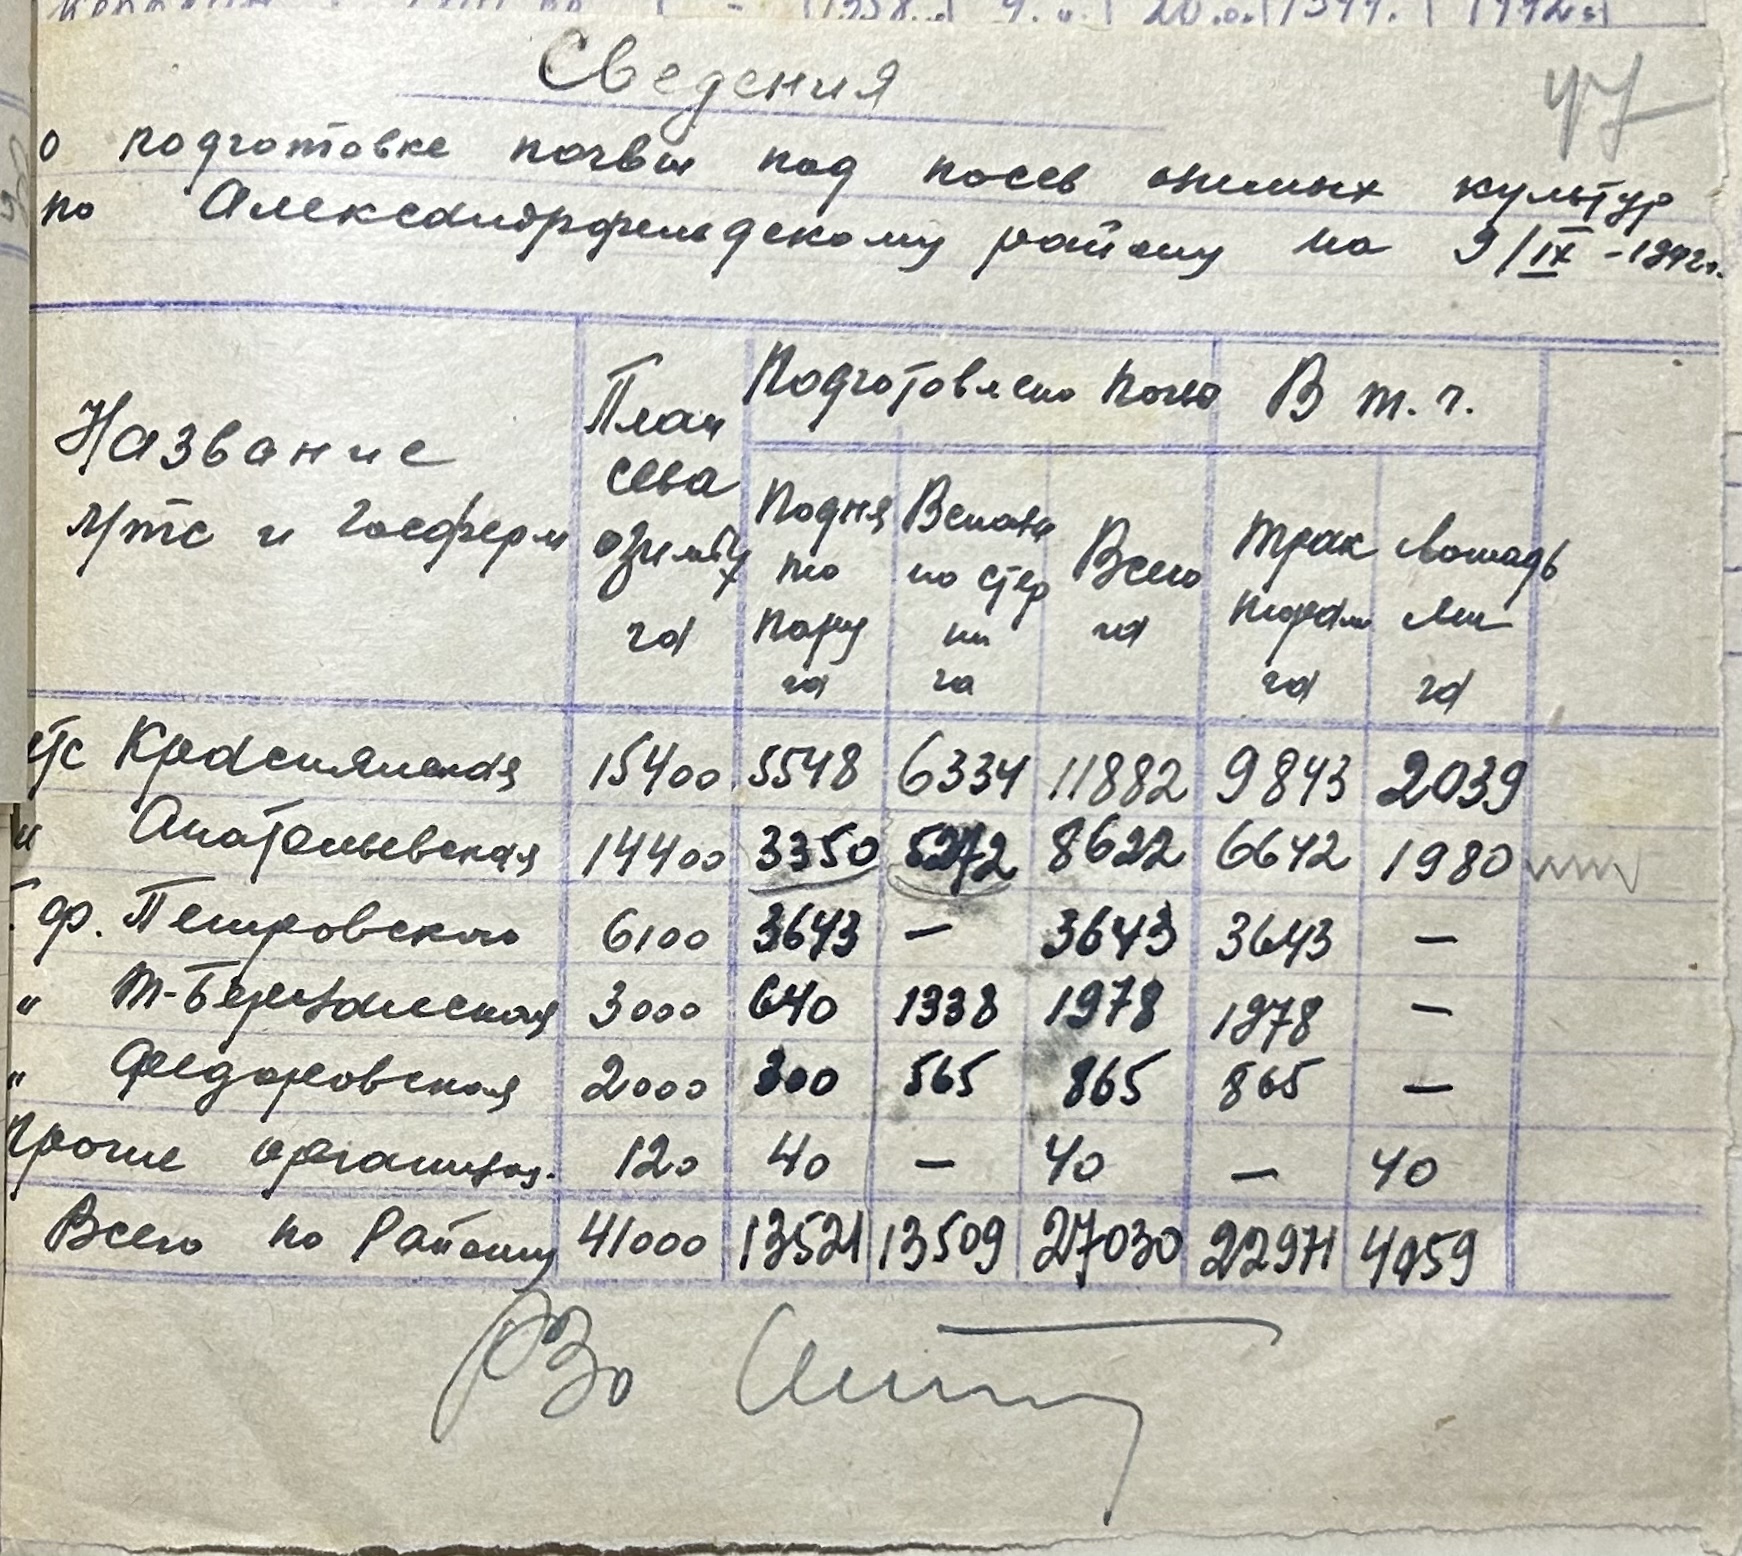 Сведения
47
о подготовке почвы под посев озимых культур
по Александрфельдскому району на 9/IX -1942г.
Название МТС и Госферм | План сева озимых га | Подготовлено почв | В т.ч.
Поднято пару га | Вспахано стерни га | Всего га | Тракторами га | Лошадьми га
МТС Краснянская 15400 5548 6334 11882 9843 2039
" Анатольевская 14400 3350 5272 8622 6642 1980
Г ф. Петровского 6100 3643 — 3643 3643 —
" Т-Березанская 3000 640 1338 1978 1978 —
" Федоровская 2000 300 565 865 865 —
Прочие организац. 120 40 — 40 — 40
Всего по Району 41000 13521 13509 27030 22971 4059
РЗО